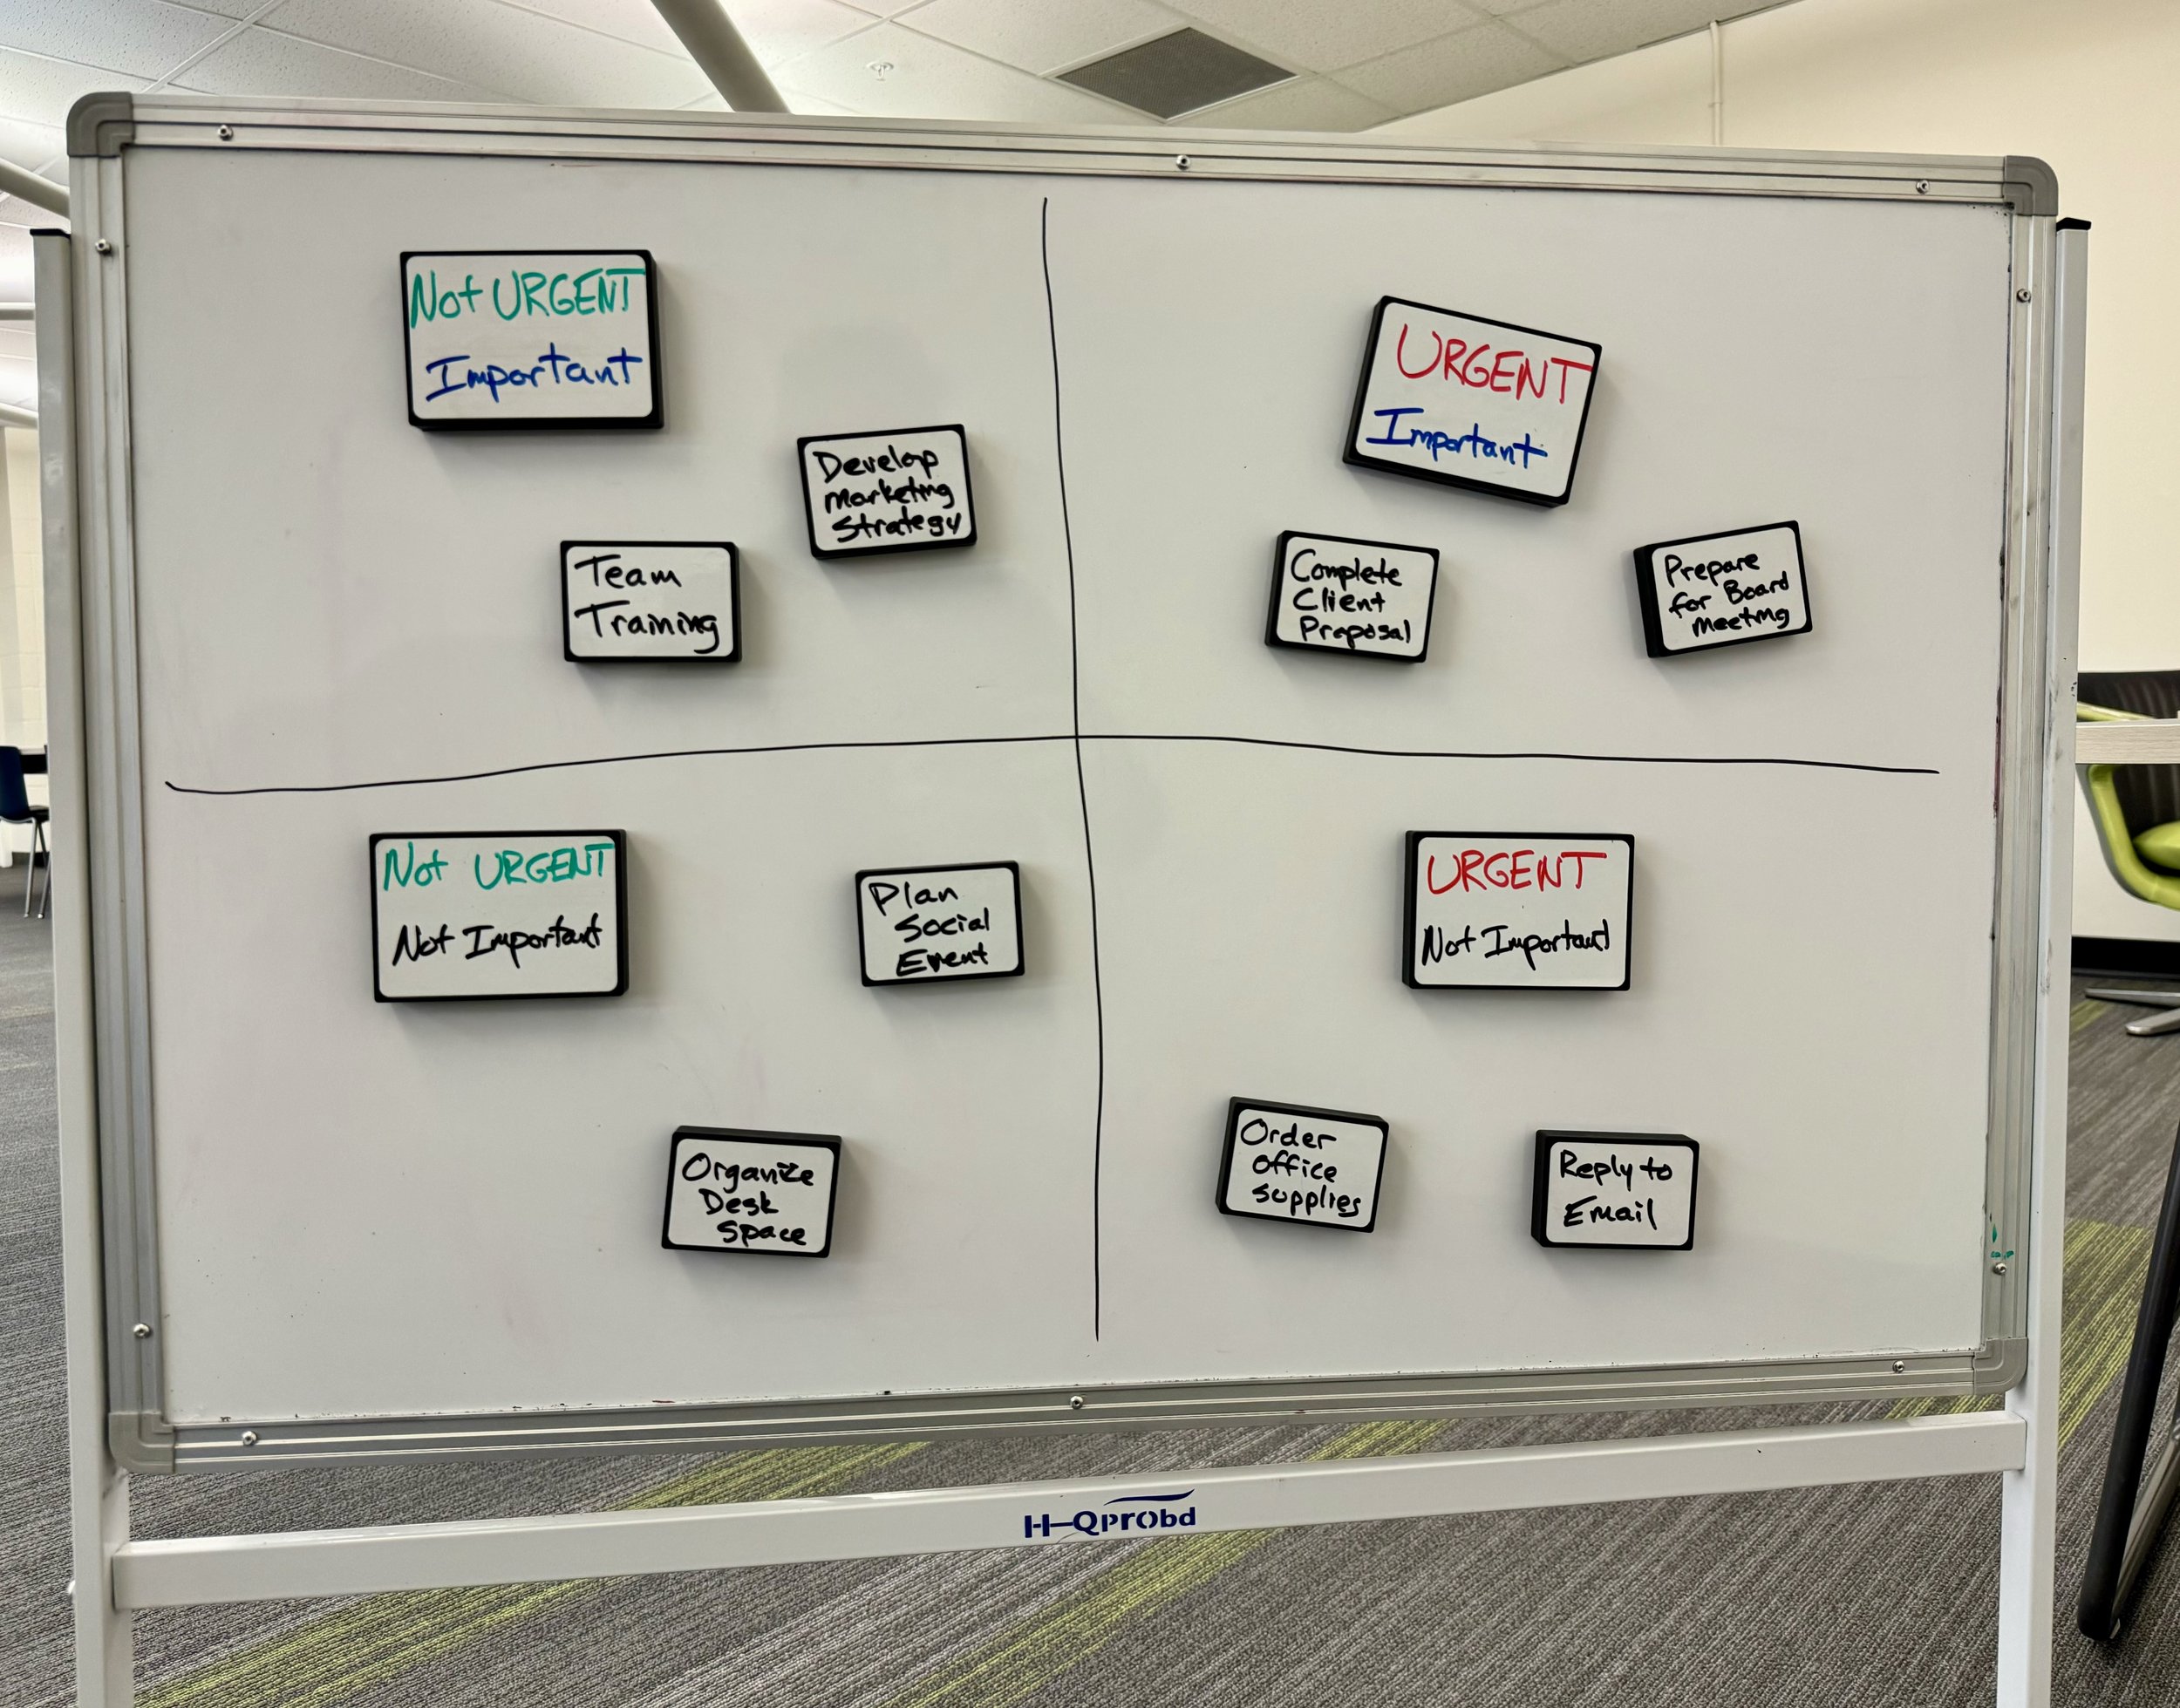 Not URGENT
Important
Develop
Marketing
Strategy
Team
Training
URGENT
Important
Complete
Client
Proposal
Prepare
for Board
Meeting
Not URGENT
Not Important
Plan
Social
Event
Organize
Desk
Space
URGENT
Not Important
Order
Office
Supplies
Reply to
Email
H-Qprobd